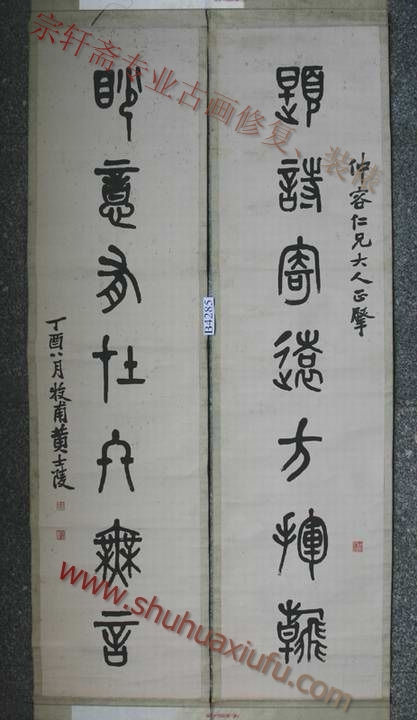 宗轩斋专业古画修复、装裱
題詩寄遠方揮翰
仲容仁兄大人正
意有在無言
丁酉八月牧甫黃士陵
4285
www.shuhuaxiufu.com